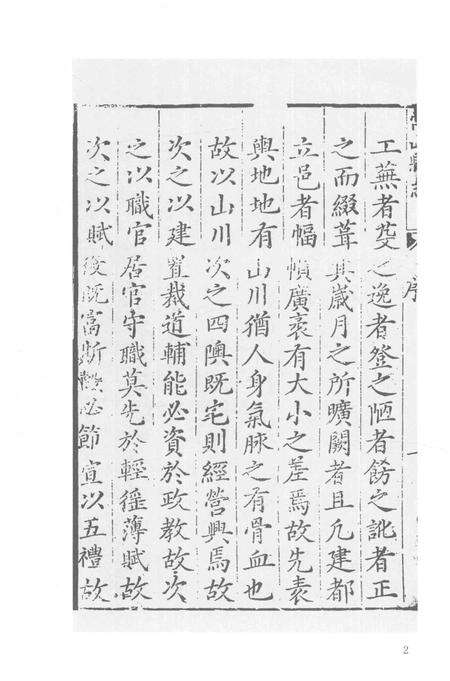 序
工蕪者芟之逸者登之陋者飭之訛者正
之而綴葺其歲月之所曠闕者且凡建都
立邑者幅幀廣袤有大小之差焉故先表
輿地地有山川猶人身氣脉之有骨血也
故以山川次之四隩既宅則經營興焉故
次之以建置裁道輔能必資於政教故次
之以職官居官守職莫先於輕徭薄賦故
次之以賦役既富斯必節宣以五禮故
2